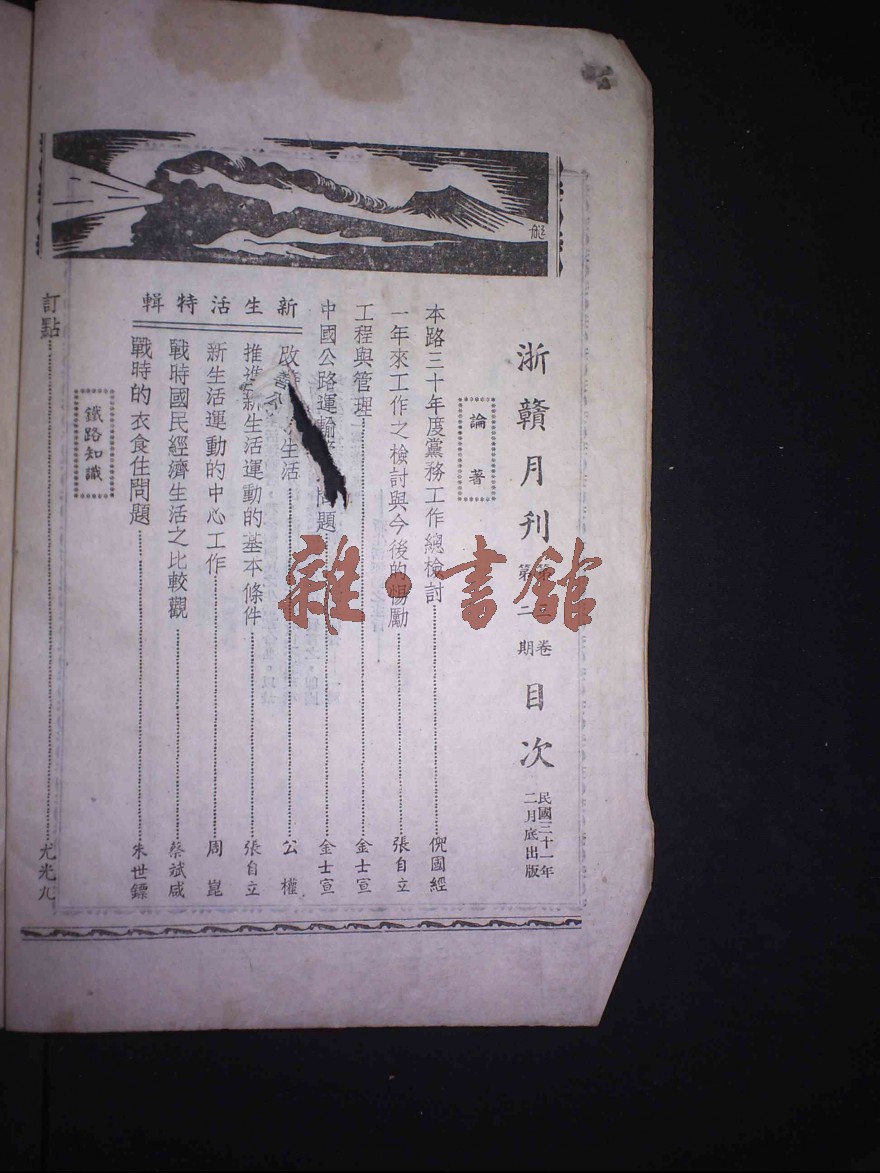 浙贛月刊
卷
第二期
目次
民國三十一年
二月底出版
論著
本路三十年度黨務工作總檢討 倪國經
一年來工作之檢討與今後的惕勵 張自立
工程與管理 金士宣
中國公路運輸 問題 金士宣
新生活特輯
改善 生活 公權
推進新生活運動的基本條件 張自立
新生活運動的中心工作 周崑
戰時國民經濟生活之比較觀 蔡斌咸
戰時的衣食住問題 朱世鏢
鐵路知識
訂點 尤光九
艇
雜·書館